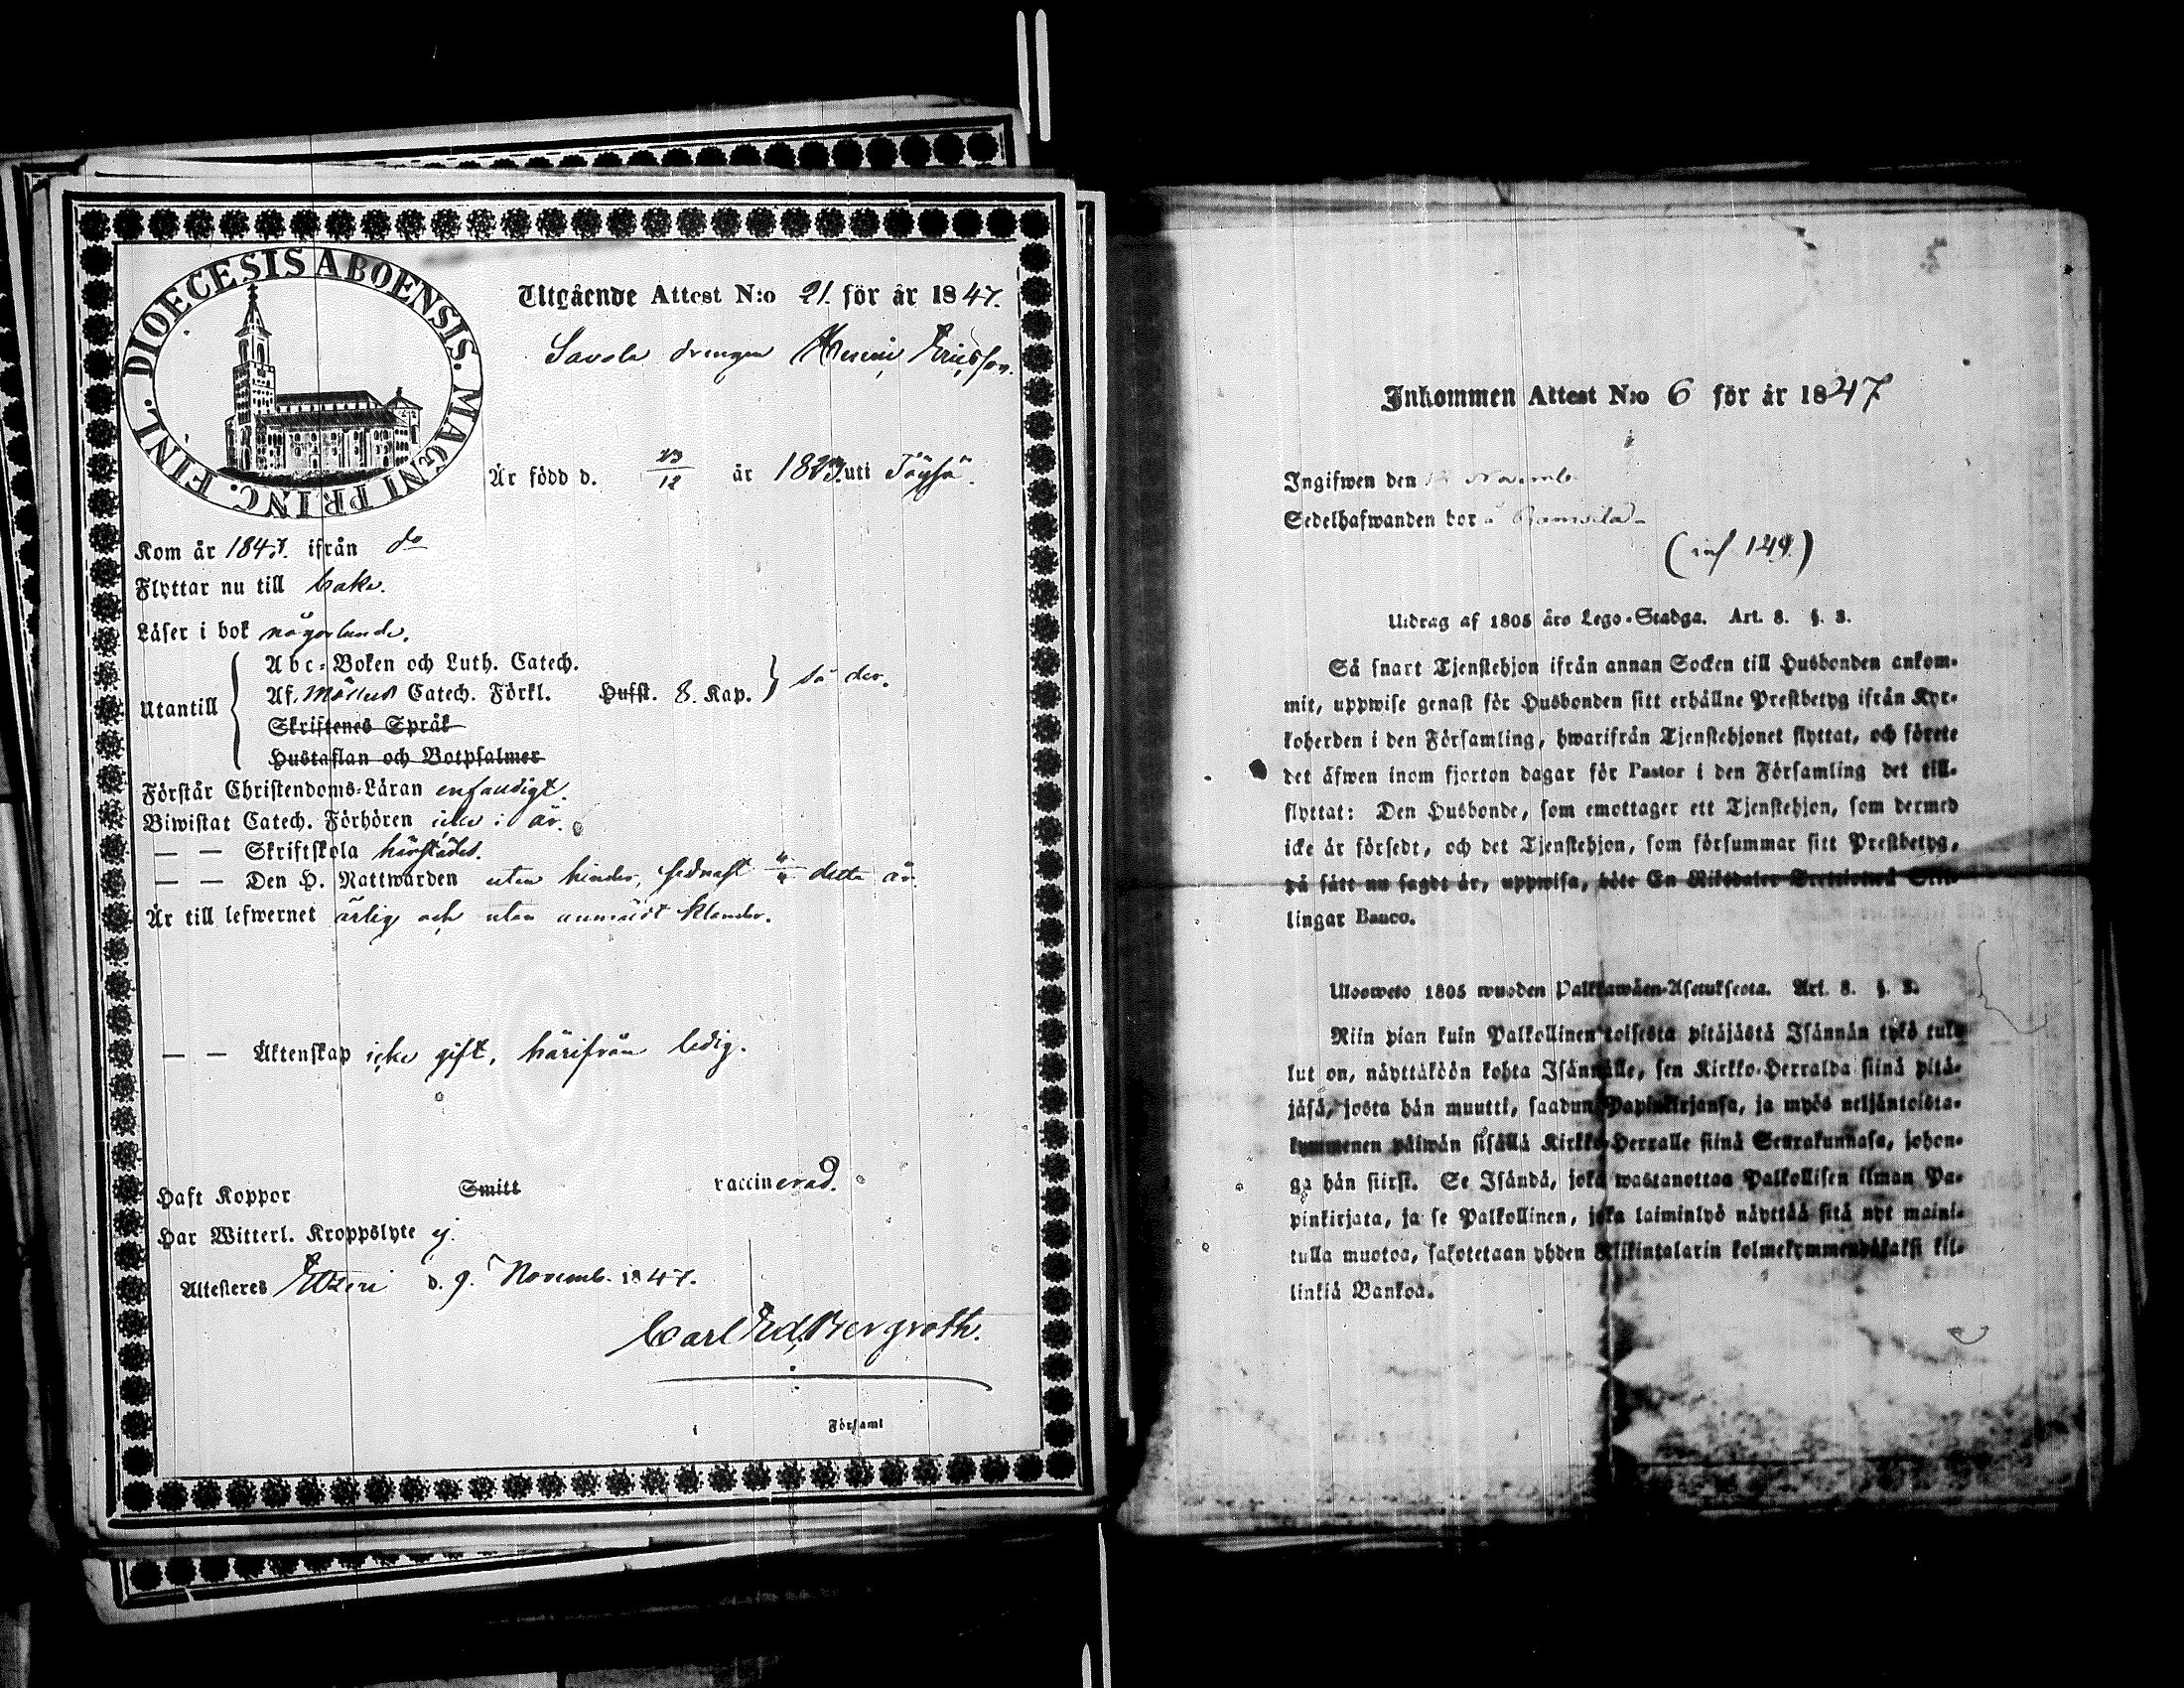 DIOECESIS ABOENSIS. MAGNI PRINC. FINL.
Utgående Attest N:o 21. för år 1847.
Savola drengen Henric Ericsson.
Är född d. 23/12 år 1823 uti Töysä.
Kom år 1847. ifrån do
Flyttar nu till baka.
Läser i bok någorlunda.
Abc-Boken och Luth. Catech.
Utantill Af Möllers Catech. Förkl. Husst. 8. Kap. så der.
Skriftenes Språk
Hustaflan och Botpsalmer
Förstår Christendoms-Läran enfaldigt.
Biwistat Catech. Förhören icke i år.
— — Skriftskola härstädes.
— — Den H. Nattwarden utan hinder, sednast detta år.
Är till lefwernet ärlig och utan anmärkt klander.
— — Äktenskap icke gift, härifrån ledig.
Haft Koppor Smitt vaccinerad.
Har Witterl. Kroppslyte ej.
Attesteres Etseri d. 9. Novemb. 1847.
Carl Ed. Bergroth.
i Församl
Inkommen Attest N:o 6 för år 1847
Ingifwen den Novemb.
Sedelhafwanden bor å
(inf 149.)
Utdrag af 1805 års Lego-Stadga. Art. 8. §. 3.
Så snart Tjenstehjon ifrån annan Socken till Husbonden ankom-
mit, uppwise genast för Husbonden sitt erhållne Prestbetyg ifrån Kyr-
koherden i den Församling, hwarifrån Tjenstehjonet flyttat, och förete
det äfwen inom fjorton dagar för Pastor i den Församling det till-
flyttat: Den Husbonde, som emottager ett Tjenstehjon, som dermed
icke är försedt, och det Tjenstehjon, som försummar sitt Prestbetyg,
på sätt nu sagdt är, uppwisa, böte En Riksdaler Trettiotwå Skil-
lingar Banco.
Ulosweto 1805 wuoden Palkkawäen-Asetuksesta. Art. 8. §. 3.
Niin pian kuin Palkollinen toisesta pitäjästä Isännän tykö tul-
lut on, näyttäköön kohta Isännälle, sen Kirkko-Herralda siinä pitä-
jäsä, josta hän muutti, saadun Papinkirjansa, ja myös neljäntoista-
kymmenen päiwän sisällä Kirkko-Herralle siinä Seurakunnasa, johon-
ga hän siirst. Se Isändä, joka wastanottaa Palkollisen ilman Pa-
pinkirjata, ja se Palkollinen, joka laiminlyö näyttää sitä nyt maini-
tulla muotoa, sakotetaan yhden Rikintalarin kolmekymmendäkaksi kil-
linkiä Bankoa.